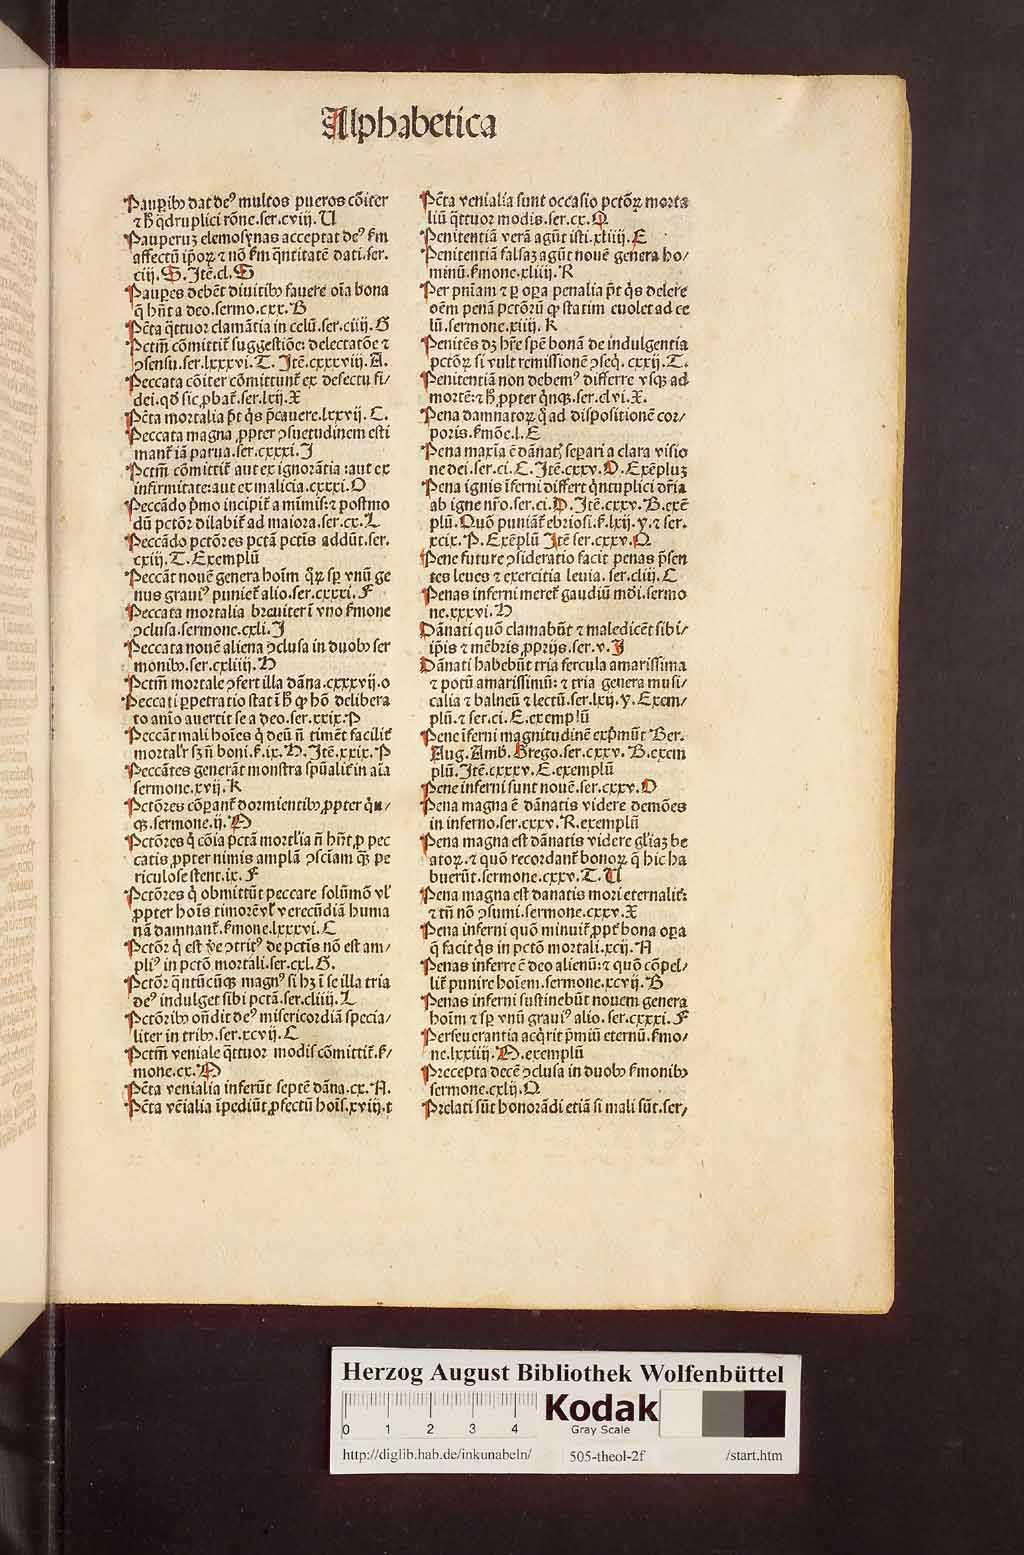 Alphabetica
Pauꝑibꝰ dat deꝰ multos pueros cōiter
⁊ hͦ q̄druplici rōne.ser.cviij.U
Pauperuꝫ elemosynas acceptat deꝰ ẜm
affectū ip̄oꝝ ⁊ nō ẜm q̄ntitatē dati.ser.
ciij.S.Itē.cl.S
Pauꝑes debēt diuitibꝰ fauere oīa bona
q̄ hn̄t a deo.sermo.cxx.B
Pctā q̄ttuor clamātia in celū.ser.ciiij.G
Pctm̄ cōmittit̄ suggestiōe: delectatōe ⁊
ꝯsensu.ser.lxxxvi.T.Itē.cxxxviij.A.
Peccata cōiter cōmittunt̄ ex defectu fi/
dei.qd̄ sic ꝓbat̄.ser.lxij.X
Pctā mortalia p̄t q̄s p̄cauere.lxxvij.C.
Peccata magna ꝓpter ꝯsuetudinem esti
mant̄ iā parua.ser.cxxxi.I
Pctm̄ cōmittit̄ aut ex ignorātia:aut ex
infirmitate:aut ex malicia.cxxxi.O
Peccādo p̄mo incipit̄ a mīmis:⁊ postmo
dū pctōr dilabit̄ ad maiora.ser.cx.L
Peccādo pctōres pctā pctīs addūt.ser.
cxiij.T.Exemplū
Peccāt nouē genera hoīm q̄ꝝ sꝑ vnū ge
nus grauiꝰ puniet̄ alio.ser.cxxxi.F
Peccata mortalia breuiter ī vno ẜmone
ꝯclusa.sermone.cxli.I
Peccata nouē aliena ꝯclusa in duobꝰ ser
monibꝰ.ser.cxliiij.H
Pctm̄ mortale ꝯfert illa dāna.cxxxvij.o
Peccati ꝑpetratio stat ī hͦ ꝙ hō delibera
to aīo auertit se a deo.ser.xxix.P
Peccāt mali hoīes q̄ deū n̄ timēt facilit̄
mortalr̄ sꝫ n̄ boni.ẜ.ix.H.Itē.xxix.P
Peccātes generāt monstra spūalit̄ in aīa
sermone.xvij.K
Pctōres cōꝑant̄ dormientibꝰ ꝓpter qn̄/
qꝫ.sermone.ij.M
Pctōres q̄ cōia pctā mortlīa n̄ hn̄t ꝓ pec
catis ꝓpter nimis amplā ꝯsciam q̄ꝫ pe
riculose stent.ix.F
Pctōres q̄ obmittūt peccare solūmō vl̄
ꝓpter hoīs timorē vl̄ verecūdiā huma
nā damnant̄.ẜmone.lxxxvi.C
Pctōr q̄ est ve̅ ꝯtritꝰ de pctīs nō est am/
pliꝰ in pctō mortali.ser.cxl.G.
Pctōr q̄ntūcūqꝫ magnꝰ si hꝫ ī se illa tria
deꝰ indulget sibi pctā.ser.cliiij.L
Pctōribꝰ on̄dit deꝰ misericordiā specia/
liter in tribꝰ.ser.xcvij.C
Pctm̄ veniale q̄ttuor modis cōmittit̄.ẜ/
mone.cx.M
Pctā venialia inferūt septē dāna.cx.N.
Pctā venialia īpediūt ꝓfectū hoīs.xviij.t
Pctā venialia sunt occasio pctōꝝ morta
liū q̄ttuor modis.ser.cx.Q
Penitentiā verā agūt isti.xliiij.E
Penitentiā falsaꝫ agūt nouē genera ho/
minū.ẜmone.xliiij.R
Per pn̄iam ⁊ ꝑ oꝑa penalia p̄t q̄s delere
oēm penā pctōrū ꝙ statim euolet ad ce
lū.sermone.xiiij.K
Penitēs dꝫ hr̄e spē bonā de indulgentia
pctōꝝ si vult remissionē ꝯseq̄.cxxij.T.
Penitentiā non debemꝰ differre vsqꝫ ad
mortē:⁊ hͦ ꝓpter q̄nqꝫ.ser.clvi.X.
Pena damnatoꝝ q̄ ad dispositionē cor/
poris.ẜmōe.l.E
Pena maxīa ē dānat̄ separi a clara visio
ne dei.ser.ci.C.Itē.cxxv.O.Exēpluꝫ
Pena ignis īferni differt q̄ntuplici dr̄ia
ab igne nr̄o.ser.ci.D.Itē.cxxv.B.exē
plū.Quō puniāt̄ ebriosi.ẜ.lxij.y.⁊ ser.
xcix.P.Exēplū Itē ser.cxxv.Q.
Pene future ꝯsideratio facit penas p̄sen
tes leues ⁊ exercitia leuia.ser.cliij.C
Penas inferni meret̄ gaudiū mūdi.sermo
ne.xxxvi.H
Dānati quō clamabūt ⁊ maledicēt sibi/
ip̄is ⁊ mēbris ꝓprijs.ser.v.I
Dānati habebūt tria fercula amarissima
⁊ potū amarissimū:⁊ tria genera musi/
calia ⁊ balneū ⁊ lectū.ser.lxij.y.Exem/
plū.⁊ ser.ci.E.exemplū
Pene īferni magnitudinē exp̄mūt Ber.
Aug.Amb.Grego.ser.cxxv.B.exem
plū.Itē.cxxxv.E.exemplū
Pene inferni sunt nouē.ser.cxxv.O
Pena magna ē dānatis videre demōes
in inferno.ser.cxxv.R.exemplū
Pena magna est dānatis videre gl̄iaꝫ be
atoꝝ.⁊ quō recordant̄ bonoꝝ q̄ hic ha
buerūt.sermone.cxxv.T.U
Pena magna est danatis mori eternalit̄:
⁊ tn̄ nō ꝯsumi.sermone.cxxv.X
Pena inferni quō minuit̄ ꝓpt̄ bona oꝑa
q̄ facit q̄s in pctō mortali.xcij.N
Penas inferre ē deo alienū:⁊ quō cōpel/
lit̄ punire hoīem.sermone.xcvij.B
Penas inferni sustinebūt nouem genera
hoīm ⁊ sꝑ vnū grauiꝰ alio.ser.cxxxi.F
Perseuerantia acq̄rit p̄miū eternū.ẜmo/
ne.lxxiiij.M.exemplū
Precepta decē ꝯclusa in duobꝰ ẜmonibꝰ
sermone.cxlij.Q
Prelati sūt honorādi etiā si mali sūt.ser/
Herzog August Bibliothek Wolfenbüttel
0 1 2 3 4
Kodak
Gray Scale
http://diglib.hab.de/inkunabeln/ 505-theol-2f /start.htm